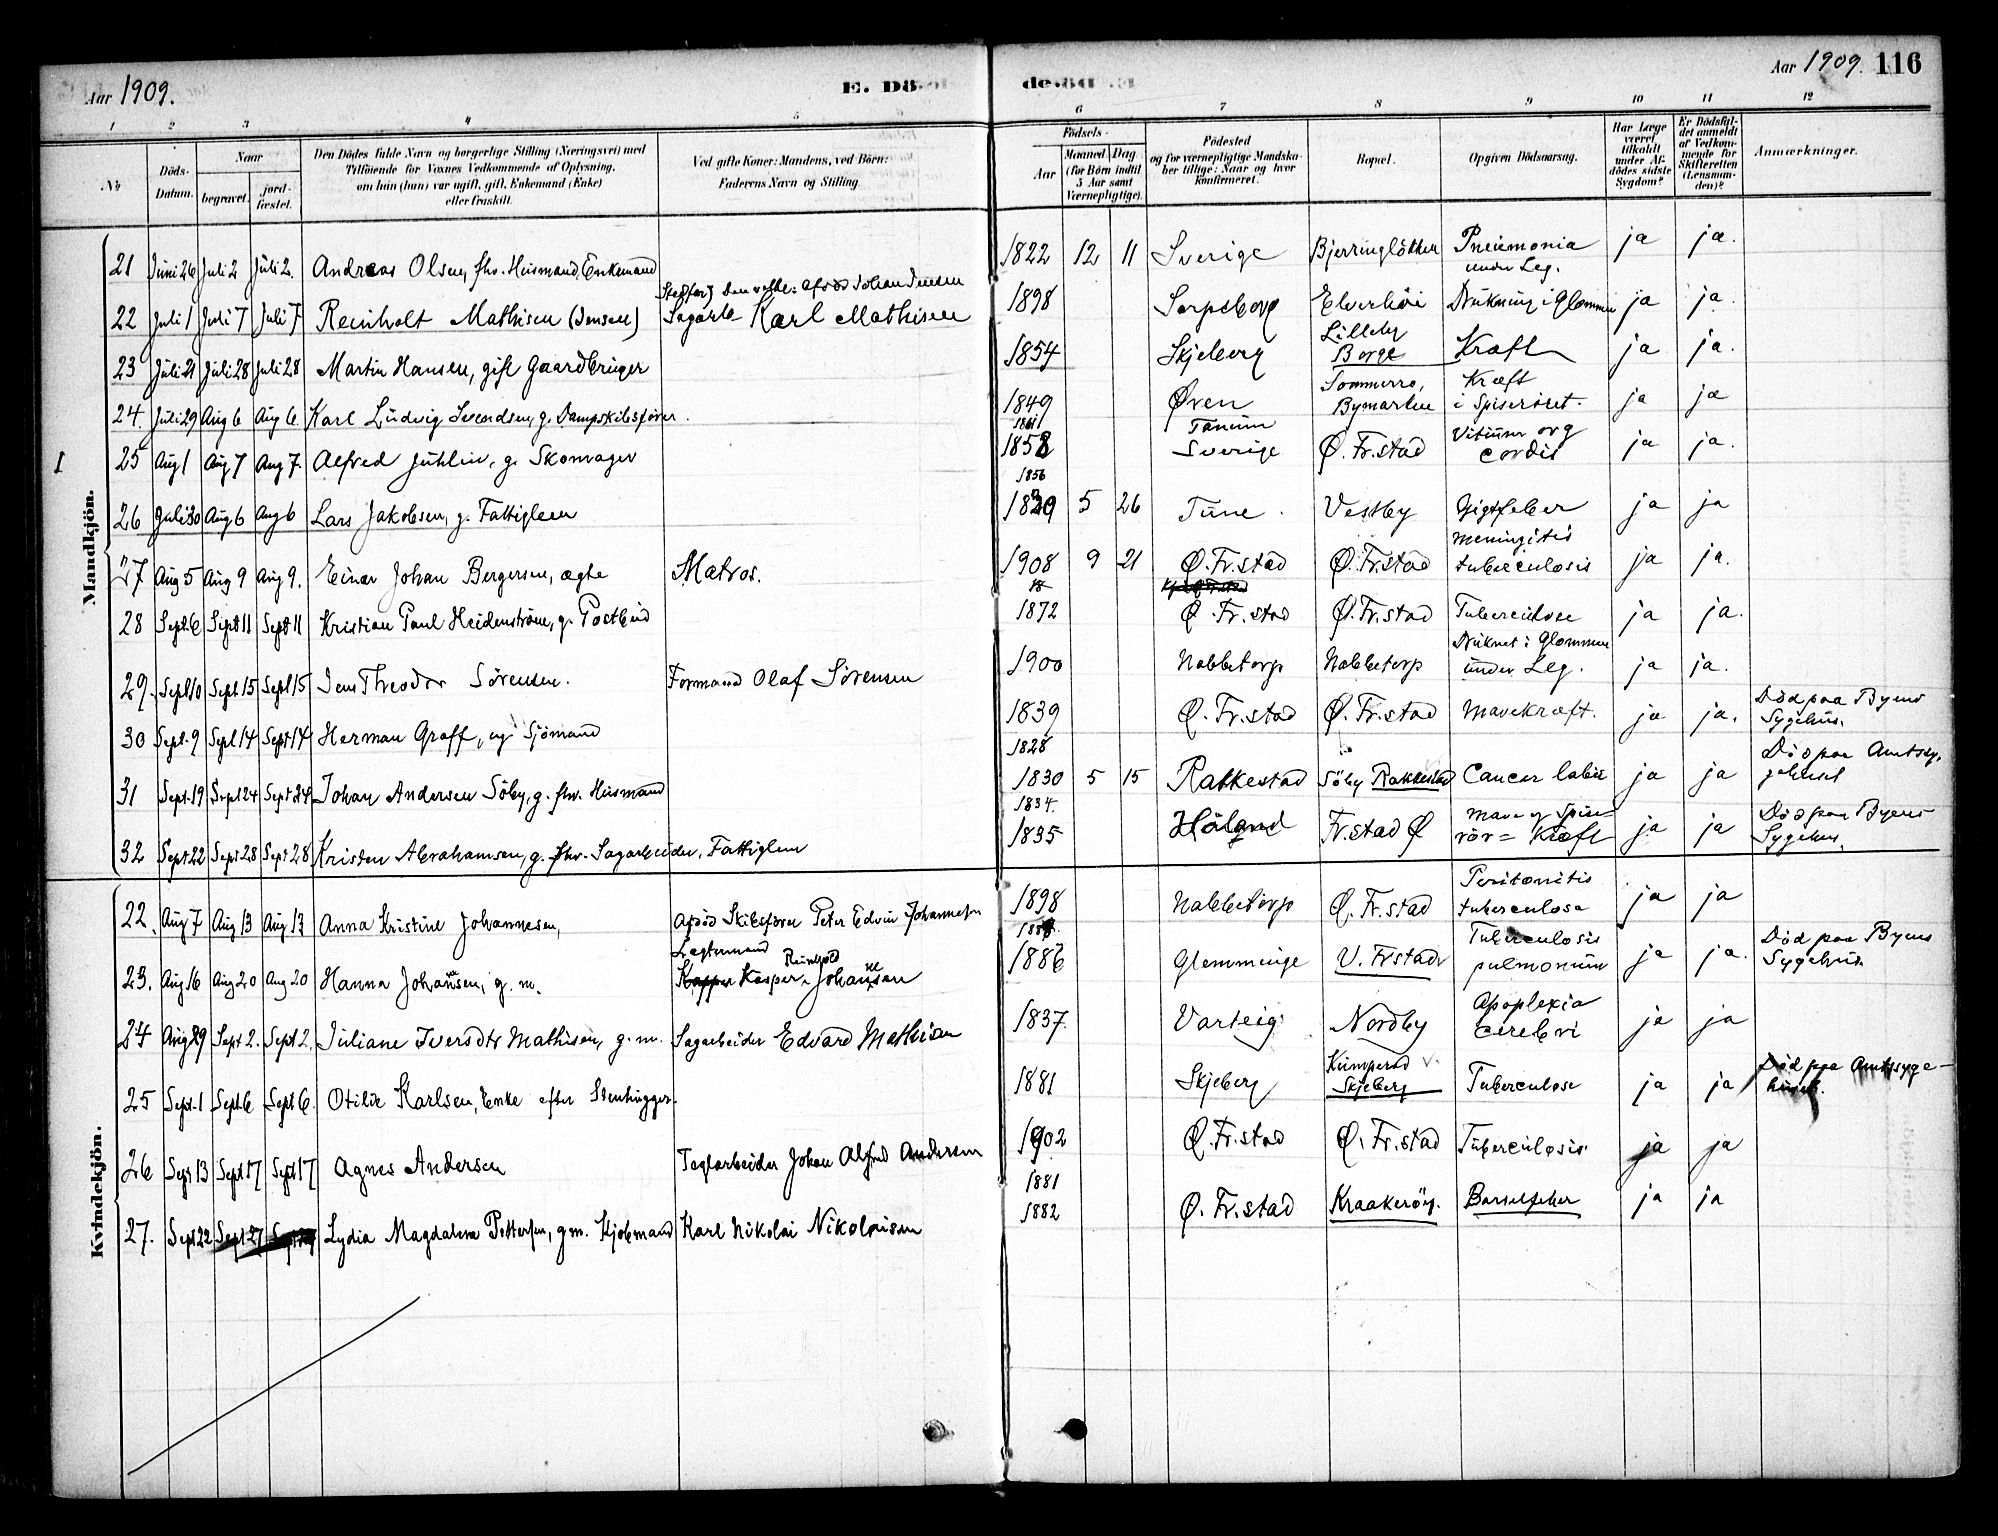 Aar 1909.
E. Dö
de.
Aar 1909. 116
1 2 3 4 5 6 7 8 9 10 11 12
No
Döds-Datum.
Naar
begravet.
jord-fæstet.
Den Dödes fulde Navn og borgerlige Stilling (Næringsvei) med
Tilföiende for Voxnes Vedkommende af Oplysning,
om han (hun) var ugift, gift, Enkemand (Enke)
eller fraskilt.
Ved gifte Koner: Mandens, ved Börn:
Faderens Navn og Stilling.
Födsels-
Aar
Maaned. Dag
(for Börn indtil 5 Aar samt Værnepligtige).
Födested
og for værnepligtige Mandska-
ber tillige: Naar og hvor
konfirmeret.
Bopæl.
Opgiven Dödsaarsag.
Har Læge været tilkaldt under Af-dödes sidste Sygdom?
Er Dödsfal-det anmeldt af Vedkom-mende for Skifteretten (Lensman-den)?
Anmærkninger.
Mandkjön.
21 Juni 26 Juli 2 Juli 2. Andreas Olsen, fhv. Husmand, Enkemand 1822 12 11 Sverige Bjerringlökken Pneumonia under Leg. ja ja.
22 Juli 1 Juli 7 Juli 7 Reinholt Mathisen (Jensen) Johan Jensen Sagarb Karl Mathisen 1898 Sarpsborg Elverhöi Drukning i Glommen ja ja.
23 Juli 21 Juli 28 Juli 28 Martin Hansen, gift Gaardbruger 1854 Skjeberg Lilleby Borge Kræft ja ja.
24. Juli 29 Aug 6 Aug 6. Karl Ludvig Svendsen, g. Dampskibsförer. 1849 Øren Sommerro, Bymarken Kræft i Spiseröret. ja ja
I 25 Aug 1 Aug 7 Aug 7. Alfred Juhlin, g. Skomager 1861 1858 Tanum Sverige Ø. Fr.stad Vitium org cordis ja ja.
26 Juli 30 Aug 6 Aug 6 Lars Jakobsen, g. Fattiglem 1856 5 26 Tune Vestby Gigtfeber ja ja
27 Aug 5 Aug 9 Aug 9. Einar Johan Bergersen, ægte Matros. 1908 9 21 Ø. Fr.stad Ø. Fr.stad Meningitis tuberculosis ja ja.
28 Sept. 6 Sept 11 Sept 11 Kristian Paul Heidenström, g. Postbud 1872 Ø. Fr.stad Ø. Fr.stad Tuberculose ja ja.
29. Sept 10 Sept. 15 Sept 15 Jens Theodor Sörensen. Formand Olaf Sörensen 1900 Nabbetorp Nabbetorp Druknet i Glommen under Leg. ja ja.
30 Sept. 9 Sept 14 Sept 14 Herman Graff, ug. Sjömand 1839 Ø. Fr.stad Ø. Fr.stad Mavekræft. ja ja. Död paa Byens Sygehus.
31 Sept. 19 Sept 24 Sept 24 Johan Andersen Söby, g. fhv. Husmand 1828 1830 5 15 Rakkestad Söby Rakkestad Cancer labii ja ja Död paa Amtssygehuset
32 Sept 22 Sept 28 Sept 28 Kristen Abrahamsen, g. fhv. Sagarbeider, Fattiglem 1834. 1835 Höland Fr.stad Ø Mave og Spiserör= Kræft ja ja Död paa Byens Sygehus.
Kvindekjön.
22. Aug 7 Aug 13 Aug 13 Anna Kristine Johannesen, Afdöd Skibsförer Peter Edvin Johannesen 1898 Nabbetorp Ø. Fr.stad Peritonitis tuberculosa ja ja
23. Aug 16 Aug 20 Aug 20 Hanna Johansen, g. m. Lægtermand Kasper Reinhold Johansen 1886 Glemminge V. Frstad Tuberculosis pulmonum ja ja. Död paa Byens Sygehus.
24 Aug 29 Sept 2. Sept 2. Juliane Iversdtr Mathisen, g. m. Sagarbeider Edvard Mathisen 1837. Varteig Nordby Apoplexia cerebri ja ja
25 Sept. 1 Sept. 6 Sept 6. Otilie Karlsen, Enke efter Stenhugger 1881 Skjeberg Kumperöd Skjeberg Tuberculose ja ja Död paa Amtssygehuset.
26 Sept 13 Sept 17 Sept 17 Agnes Andersen Teglarbeider Johan Alfred Andersen 1902 Ø. Fr.stad Ø. Fr.stad Tuberculosis ja ja
27. Sept 22 Sept 27 Lydia Magdalena Pettersen, g m. Kjöbmand Karl Nikolai Nikolaisen 1881 1882 Ø. Fr.stad Kraakeröy. Barselfeber ja ja